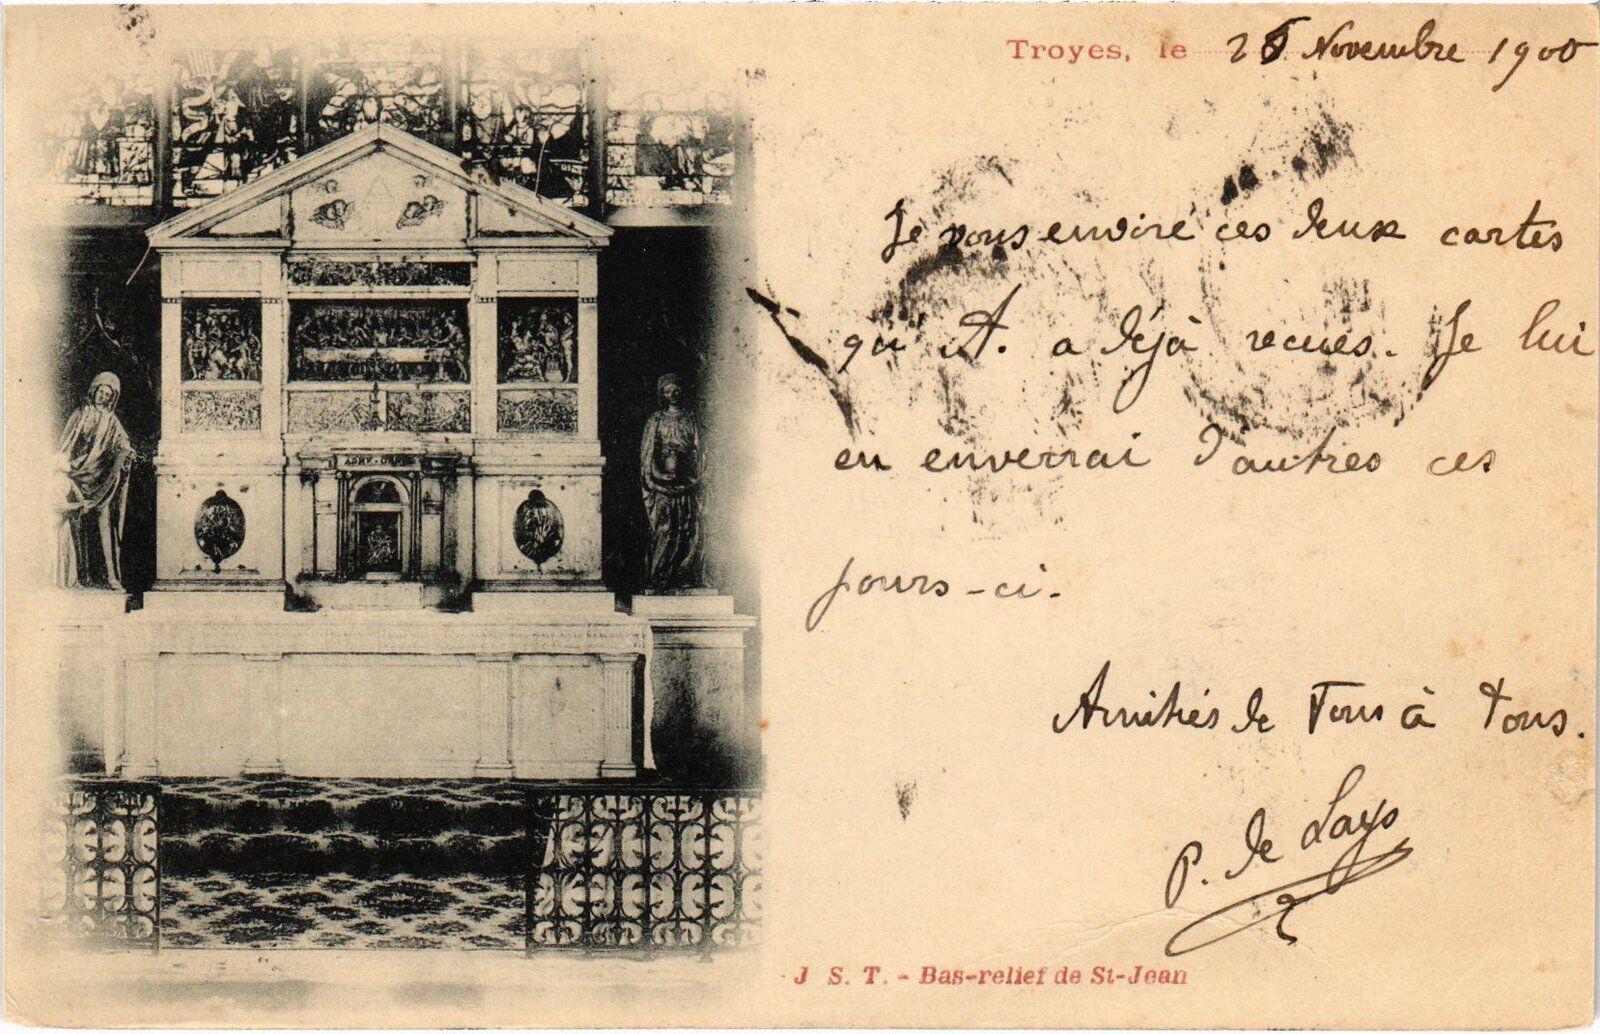 Troyes, le 26 Novembre 1900
Je vous envoie ces deux cartes
qu' A. a déjà recues. Je lui
en enverrai d'autres ces
jours-ci.
Amitiés de Tous à Tous.
P. de Lays
J S. T. - Bas-relief de St-Jean